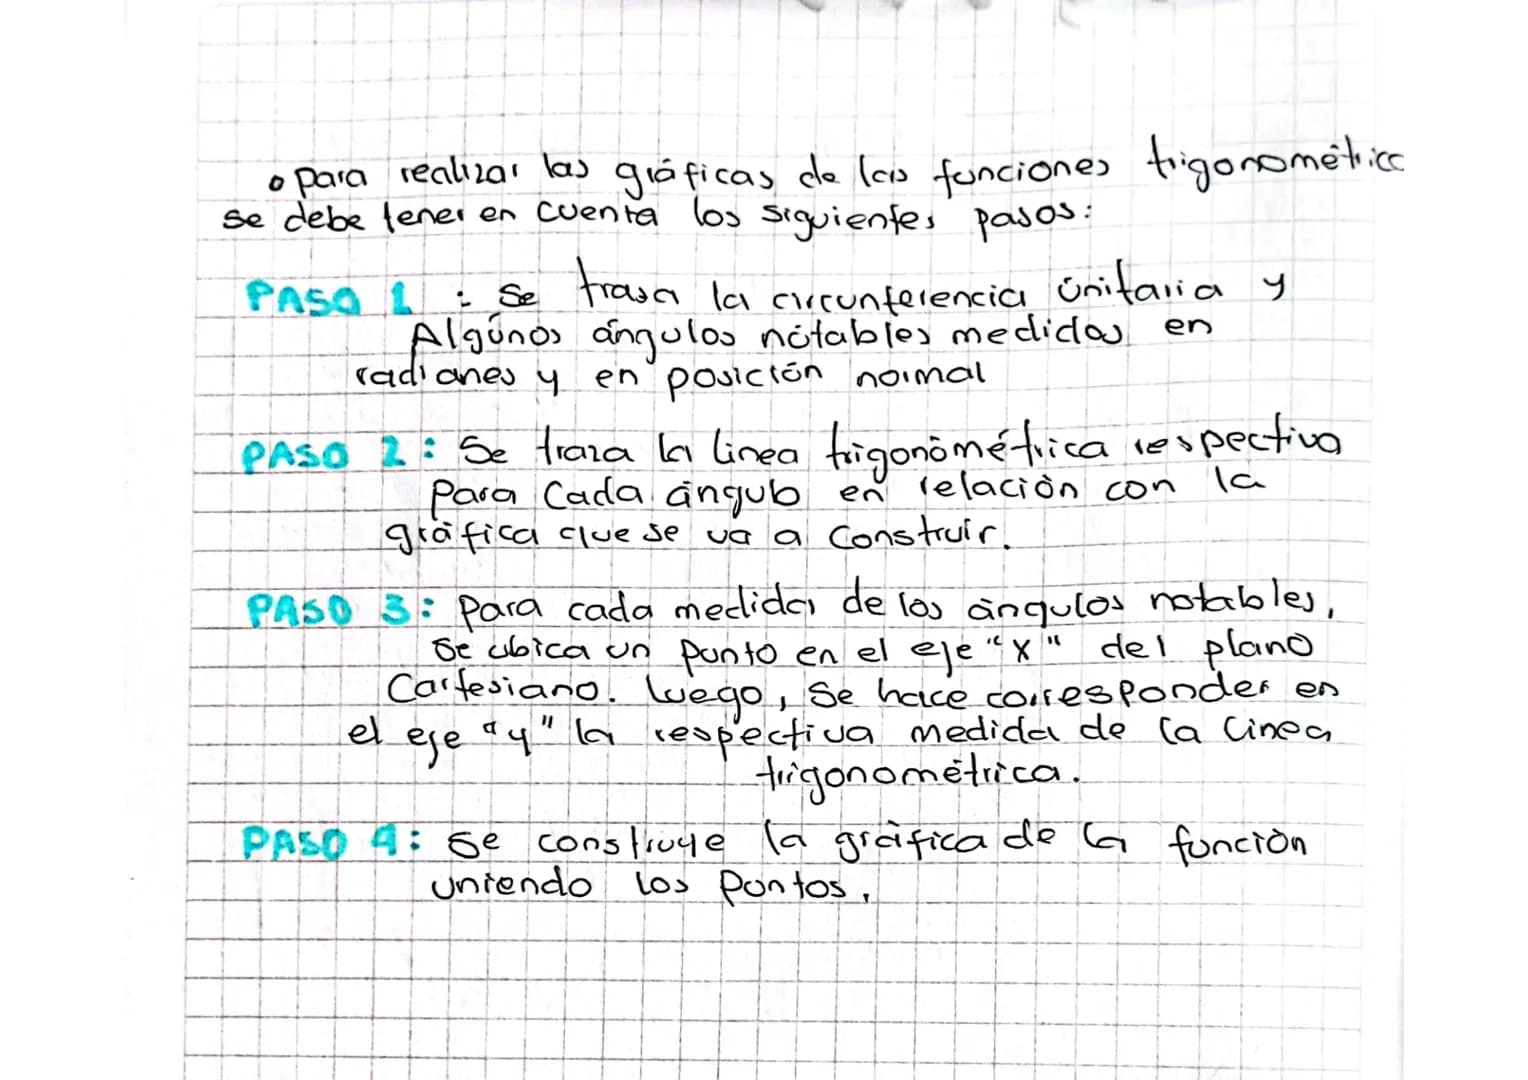 • para realizar las gráficas de las funciones trigonométricc
se debe tener en cuenta los siguientes pasos:
PASO 1 : Se trasa la circunferencia únitaria y
Algúnos ángulos nótables medidos en
radianes y en posición normal
PASO 2: Se traza la linea trigonométrica respectiva
Para Cada ángulo en relación con la
gráfica que se va a Construir.
PASO 3: Para cada medida de los ángulos notables,
Se ubica un punto en el eje "x" del plano
Cartesiano. luego, Se hace corresponder en
el eje "y" la respectiva medida de la linea
trigonométrica.
PASO 4: Se construye la gráfica de la función
uniendo los Puntos.